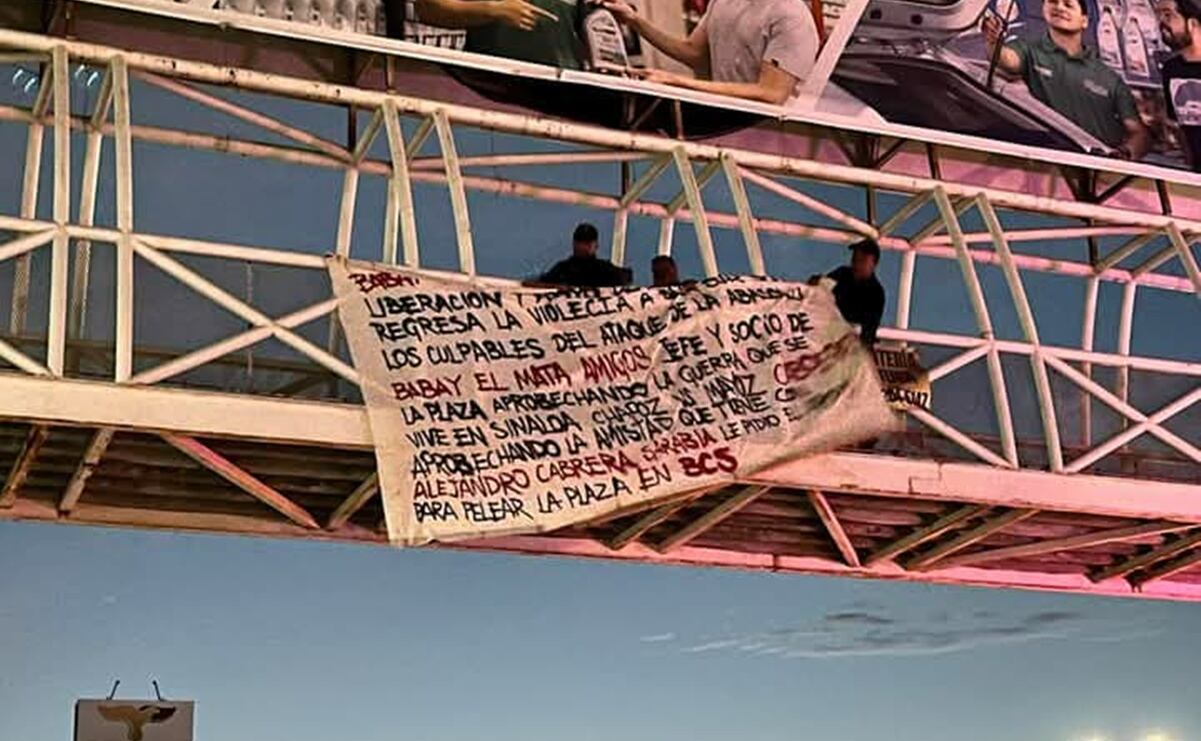 BABAY
LIBERACION Y
REGRESA LA VIOLECIA A
LOS CULPABLES DEL ATAQUE DE LA
BABAY EL MATA AMIGOS JEFE Y SOCIO DE
LA PLAZA APROBECHANDO LA GUERRA QUE SE
VIVE EN SINALOA CHAPIZ NI MAYIZ
APROBECHANDO LA AMISTAD QUE TIENE
ALEJANDRO CABRERA SARABIA LE PIDIO
PARA PELEAR LA PLAZA EN BCS